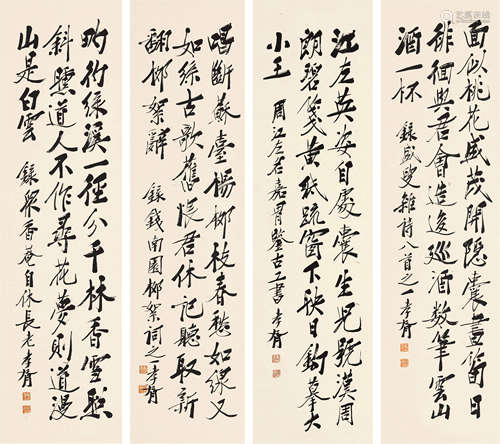 面似桃花盛茂開隱囊畫笥日
徘徊與君會造逡巡酒數筆雲山
酒一杯
錄盛叟雜詩八首之一孝胥
江左英姿自處囊坐見號漢周
朗碧箋黃紙疏窗下秋日斷摹大
小王
周江左君嘉胄鑒古工書孝胥
唱斷蘇臺楊柳枝春愁如線又
如絲古歌舊怨君休記聽取新
翻柳絮辭
錄錢南園柳絮詞之一孝胥
附綠溪一徑分千林香雪照
斜曛道人不作尋花夢則道漫
山是白雲
錄眾香庵自休長老孝胥